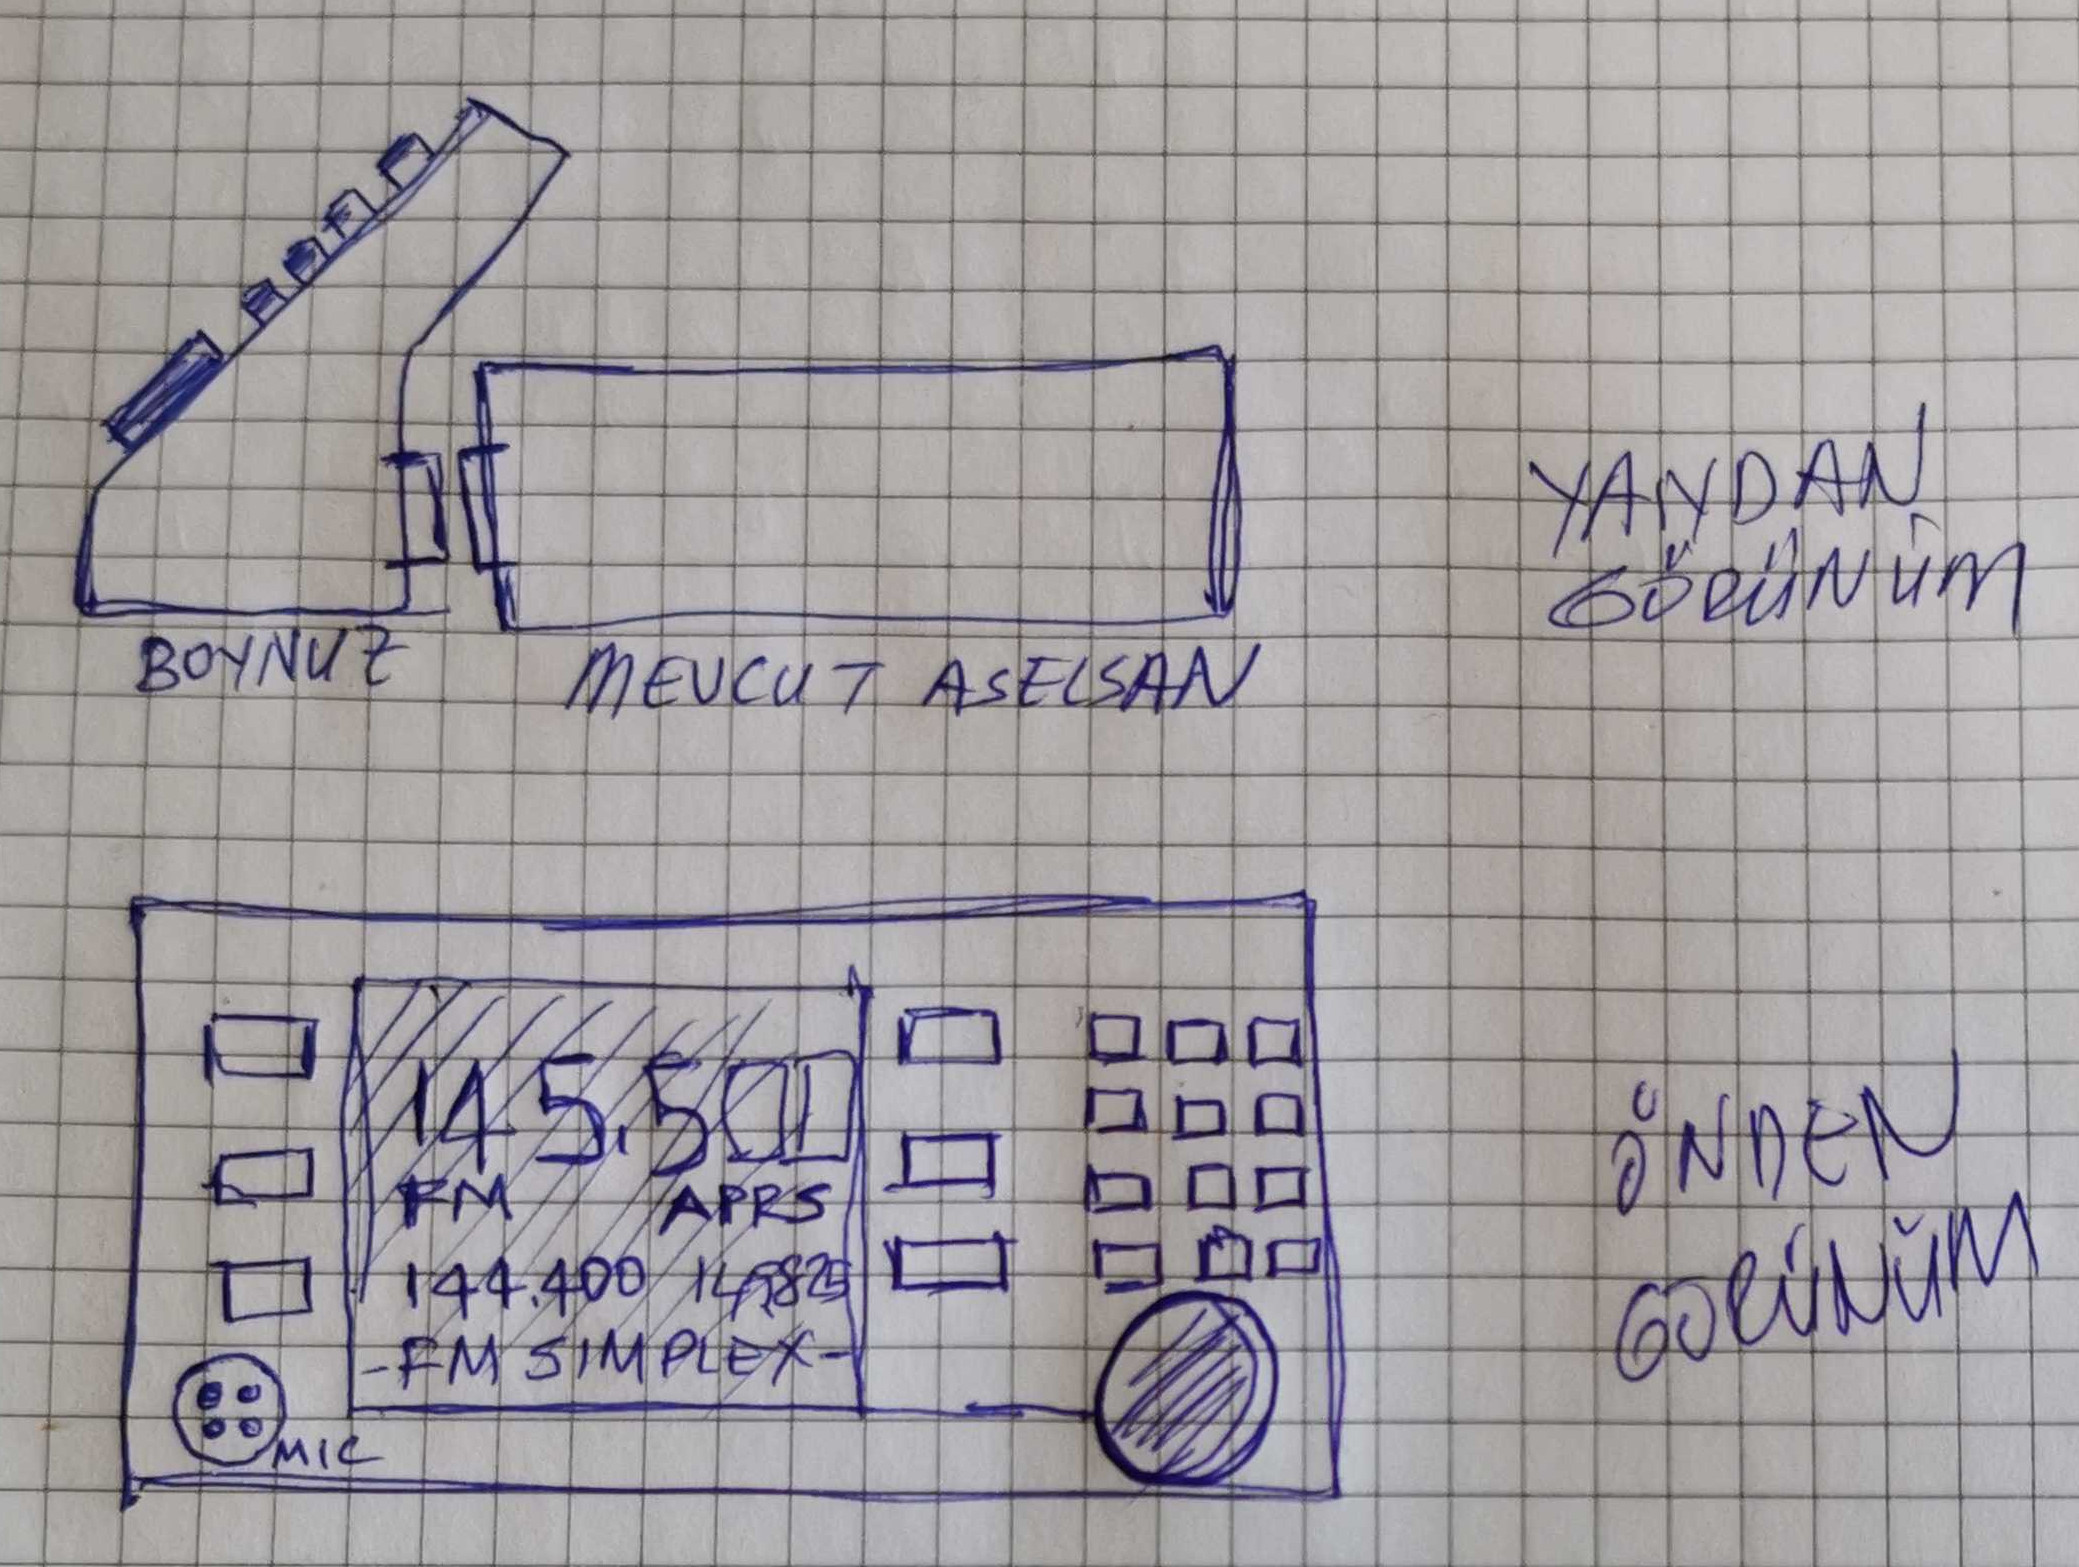 BOYNUZ
MEVCUT ASELSAN
YANDAN
GÖRÜNÜM
145.500
FM APRS
144.400 145,825
-FM SIMPLEX-
MIC
ÖNDEN
GÖRÜNÜM